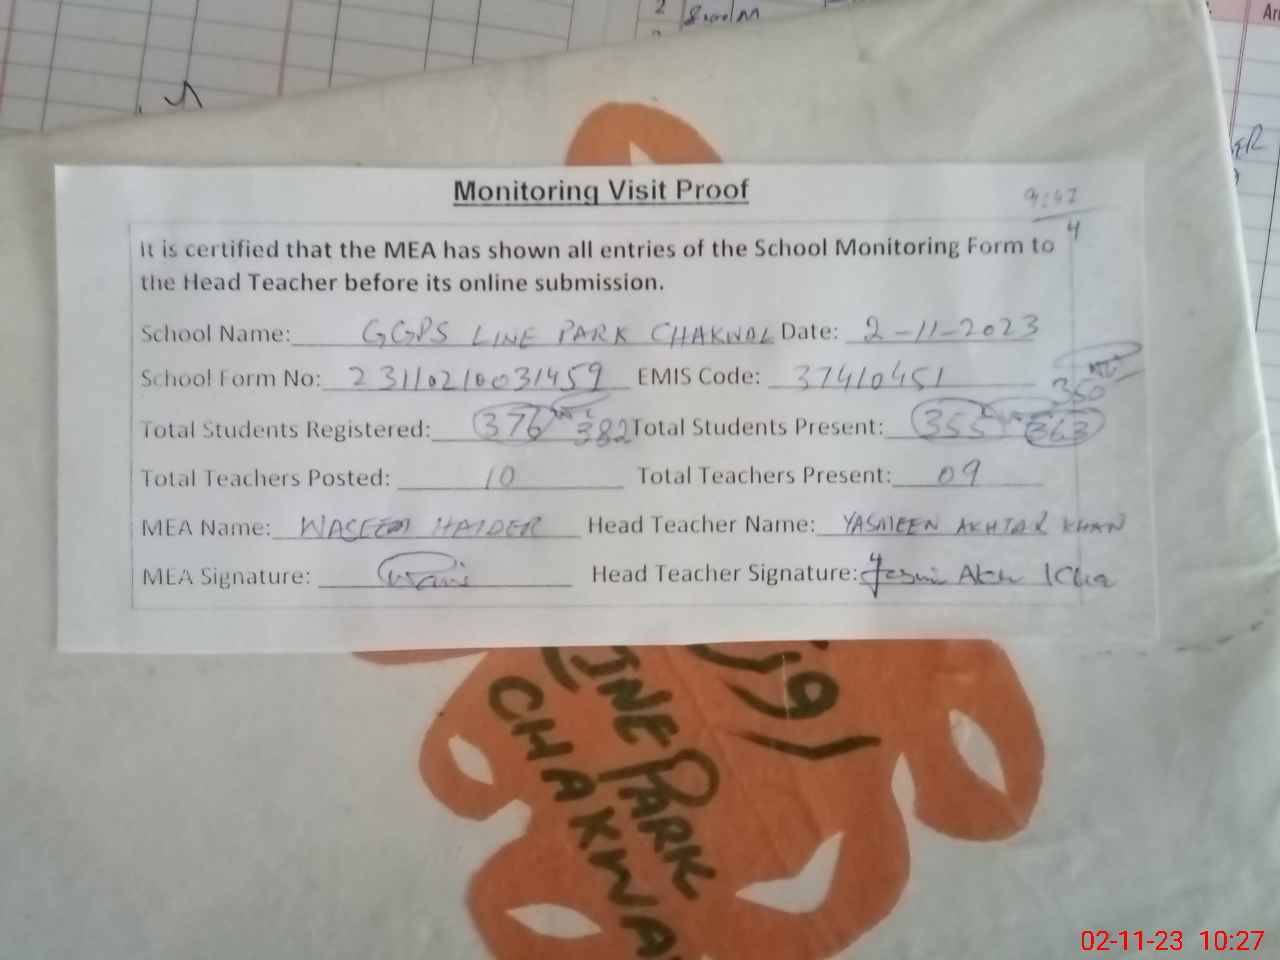 2
Monitoring Visit Proof
9:47
4
It is certified that the MEA has shown all entries of the School Monitoring Form to
the Head Teacher before its online submission.
School Name: GGPS LINE PARK CHAKWAL Date: 2-11-2023
School Form No: 23110210031459 EMIS Code: 37410451
350
Total Students Registered: 376 382 Total Students Present: 355 363
Total Teachers Posted: 10 Total Teachers Present: 09
MEA Name: WASEEM HAIDER Head Teacher Name: YASMEEN AKHTAR KHAN
MEA Signature: Head Teacher Signature:
LINE PARK
CHAKWA
02-11-23 10:27